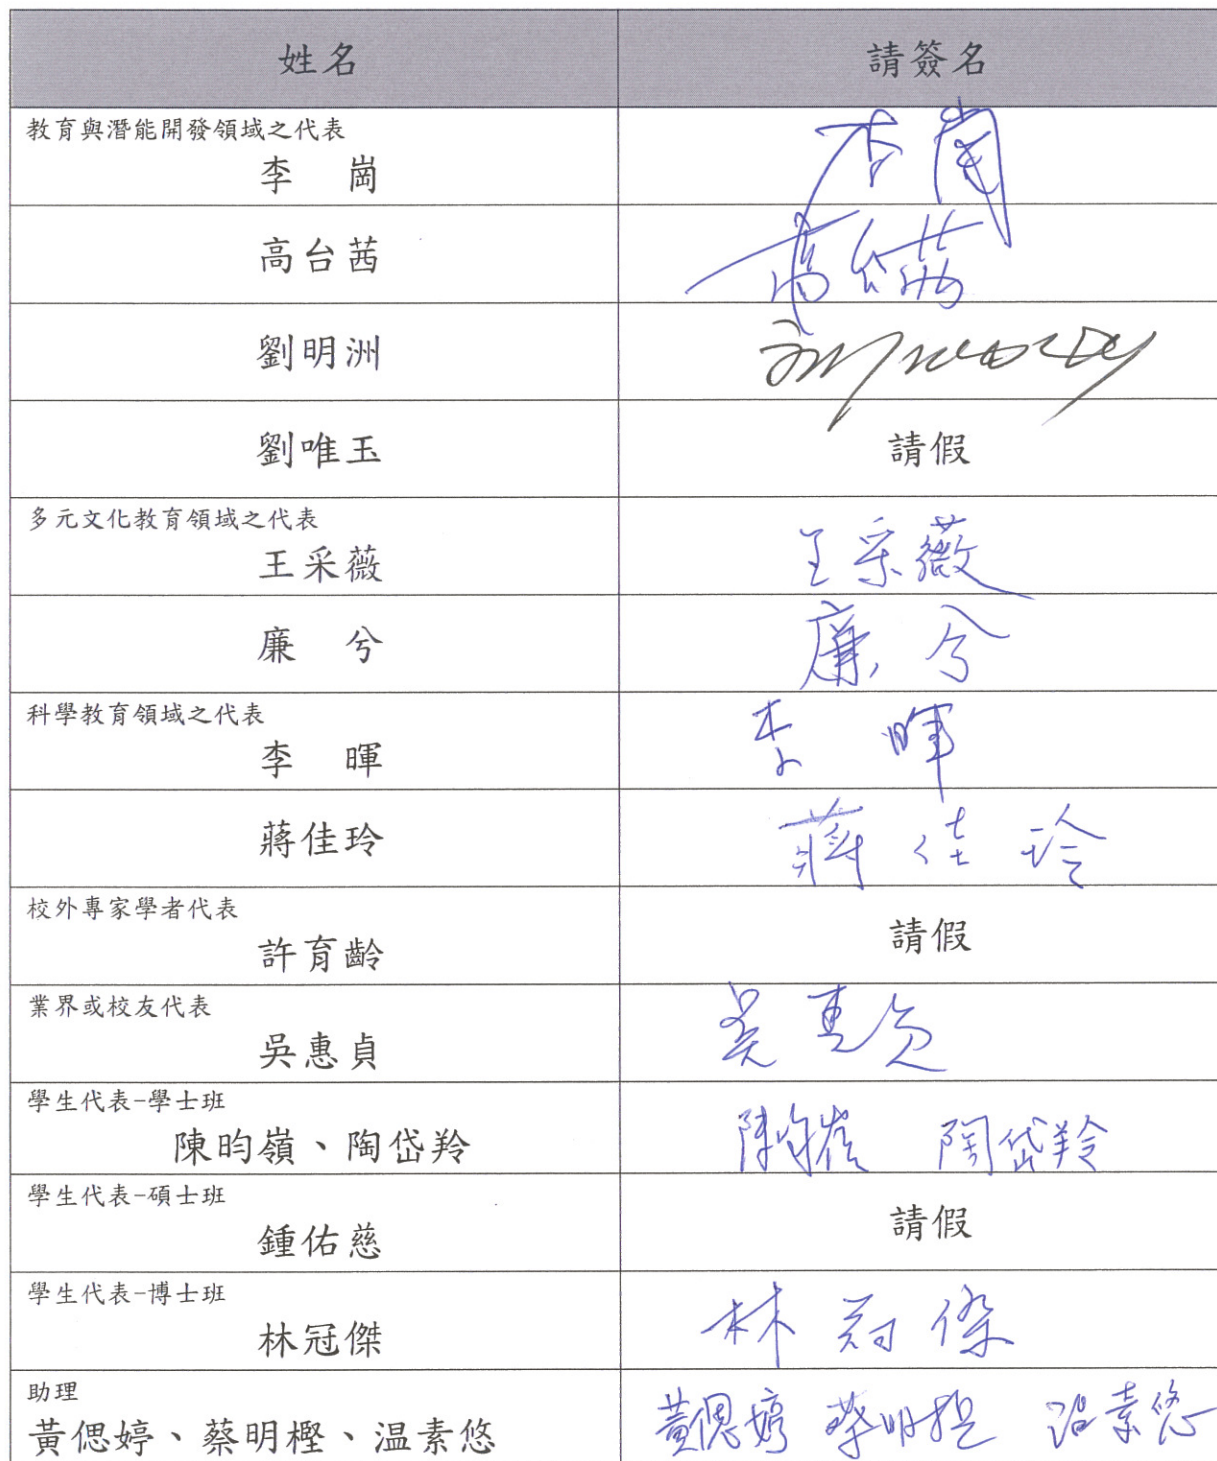 姓名 請簽名
教育與潛能開發領域之代表
李 崗 李崗
高台茜 高台茜
劉明洲
劉唯玉 請假
多元文化教育領域之代表
王采薇 王采薇
廉 兮 廉兮
科學教育領域之代表
李 暉 李暉
蔣佳玲 蔣佳玲
校外專家學者代表
許育齡 請假
業界或校友代表
吳惠貞 吳惠貞
學生代表-學士班
陳昀嶺、陶岱羚 陳昀嶺 陶岱羚
學生代表-碩士班
鍾佑慈 請假
學生代表-博士班
林冠傑 林冠傑
助理
黃偲婷、蔡明樫、温素悠 黃偲婷 蔡明樫 温素悠